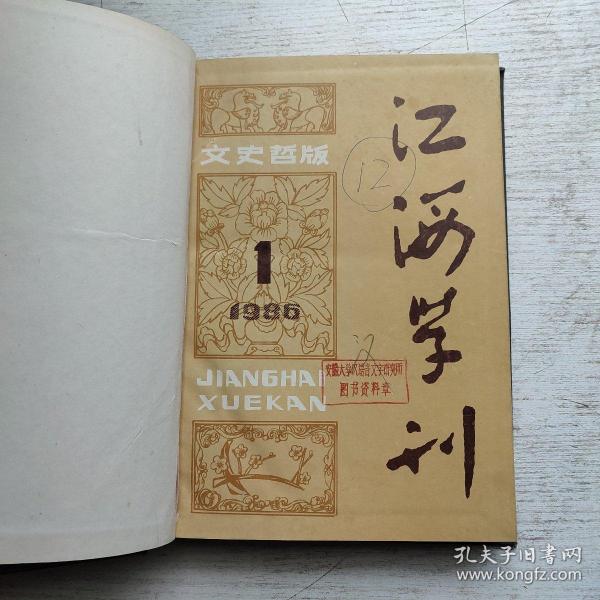 文史哲版
1
1986
JIANGHAI
XUEKAN
江海学刊
12
汉
安徽大学汉语言文字研究所
图书资料章
孔夫子旧书网
www.kongfz.com